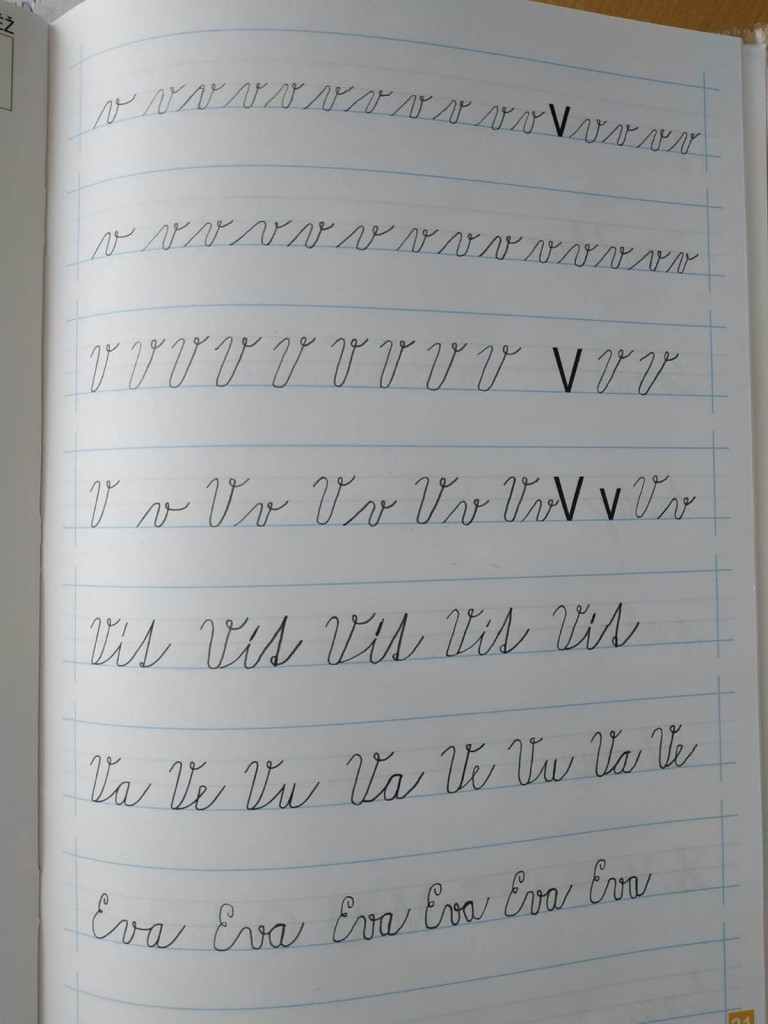 v v v v v v v v v v v v v v v v
v v v v v v v v v v v v v v
V V V V V V V V V V V V
V v Vv Vv Vv Vv V v Vv
Vis Vis Vis Vis Vis
Va Ve Vu Va Ve Vu Va Ve
Eva Eva Eva Eva Eva Eva